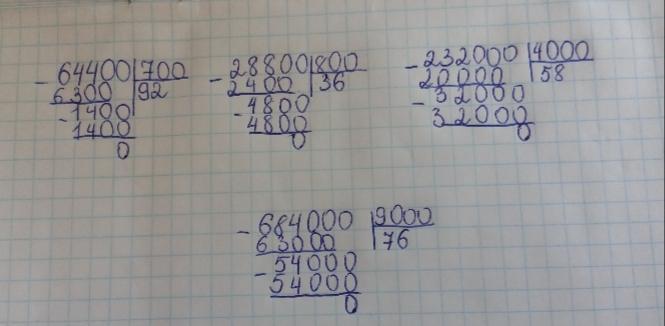 - 64400 | 700
6300 | 92
- 1400
1400
0
- 28800 | 800
2400 | 36
- 4800
4800
0
- 232000 | 4000
20000 | 58
- 32000
32000
0
- 684000 | 9000
63000 | 76
- 54000
54000
0